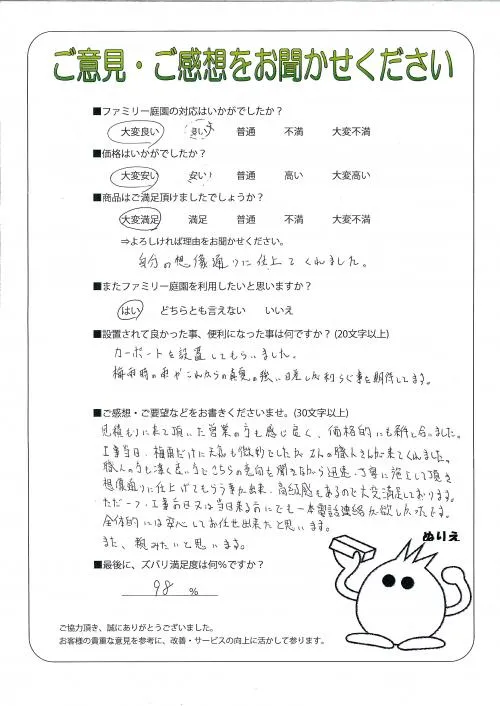 ご意見・ご感想をお聞かせください
■ファミリー庭園の対応はいかがでしたか？
大変良い 良い 普通 不満 大変不満
■価格はいかがでしたか？
大変安い 安い 普通 高い 大変高い
■商品はご満足頂けましたでしょうか？
大変満足 満足 普通 不満 大変不満
⇒よろしければ理由をお聞かせください。
自分の想像通りに仕上てくれました。
■またファミリー庭園を利用したいと思いますか？
はい どちらとも言えない いいえ
■設置されて良かった事、便利になった事は何ですか？(20文字以上)
カーポートを設置してもらいました。
梅雨時の雨やこれからの真夏の強い日差しから守る事を期待してます。
■ご感想・ご要望などをお書きくださいませ。(30文字以上)
見積もりに来て頂いた営業の方も感じ良く、価格的にも折り合いました。
工事当日、梅雨だけに天気も微妙でしたが、2人の職人さんが来てくれました。
職人の方も凄く良い方でこちらの意向も聞きながら迅速、丁寧に施工して頂き
想像通りに仕上げてもらう事が出来、高級感もあるので大変満足しております。
ただ一つ、工事前日又は当日来る前にでも一本電話連絡が欲しかったです。
全体的には安心してお任せ出来たと思います。
また、頼みたいと思います。
ぬりえ
■最後に、ズバリ満足度は何％ですか？
98 ％
ご協力頂き、誠にありがとうございました。
お客様の貴重な意見を参考に、改善・サービスの向上に活かして参ります。